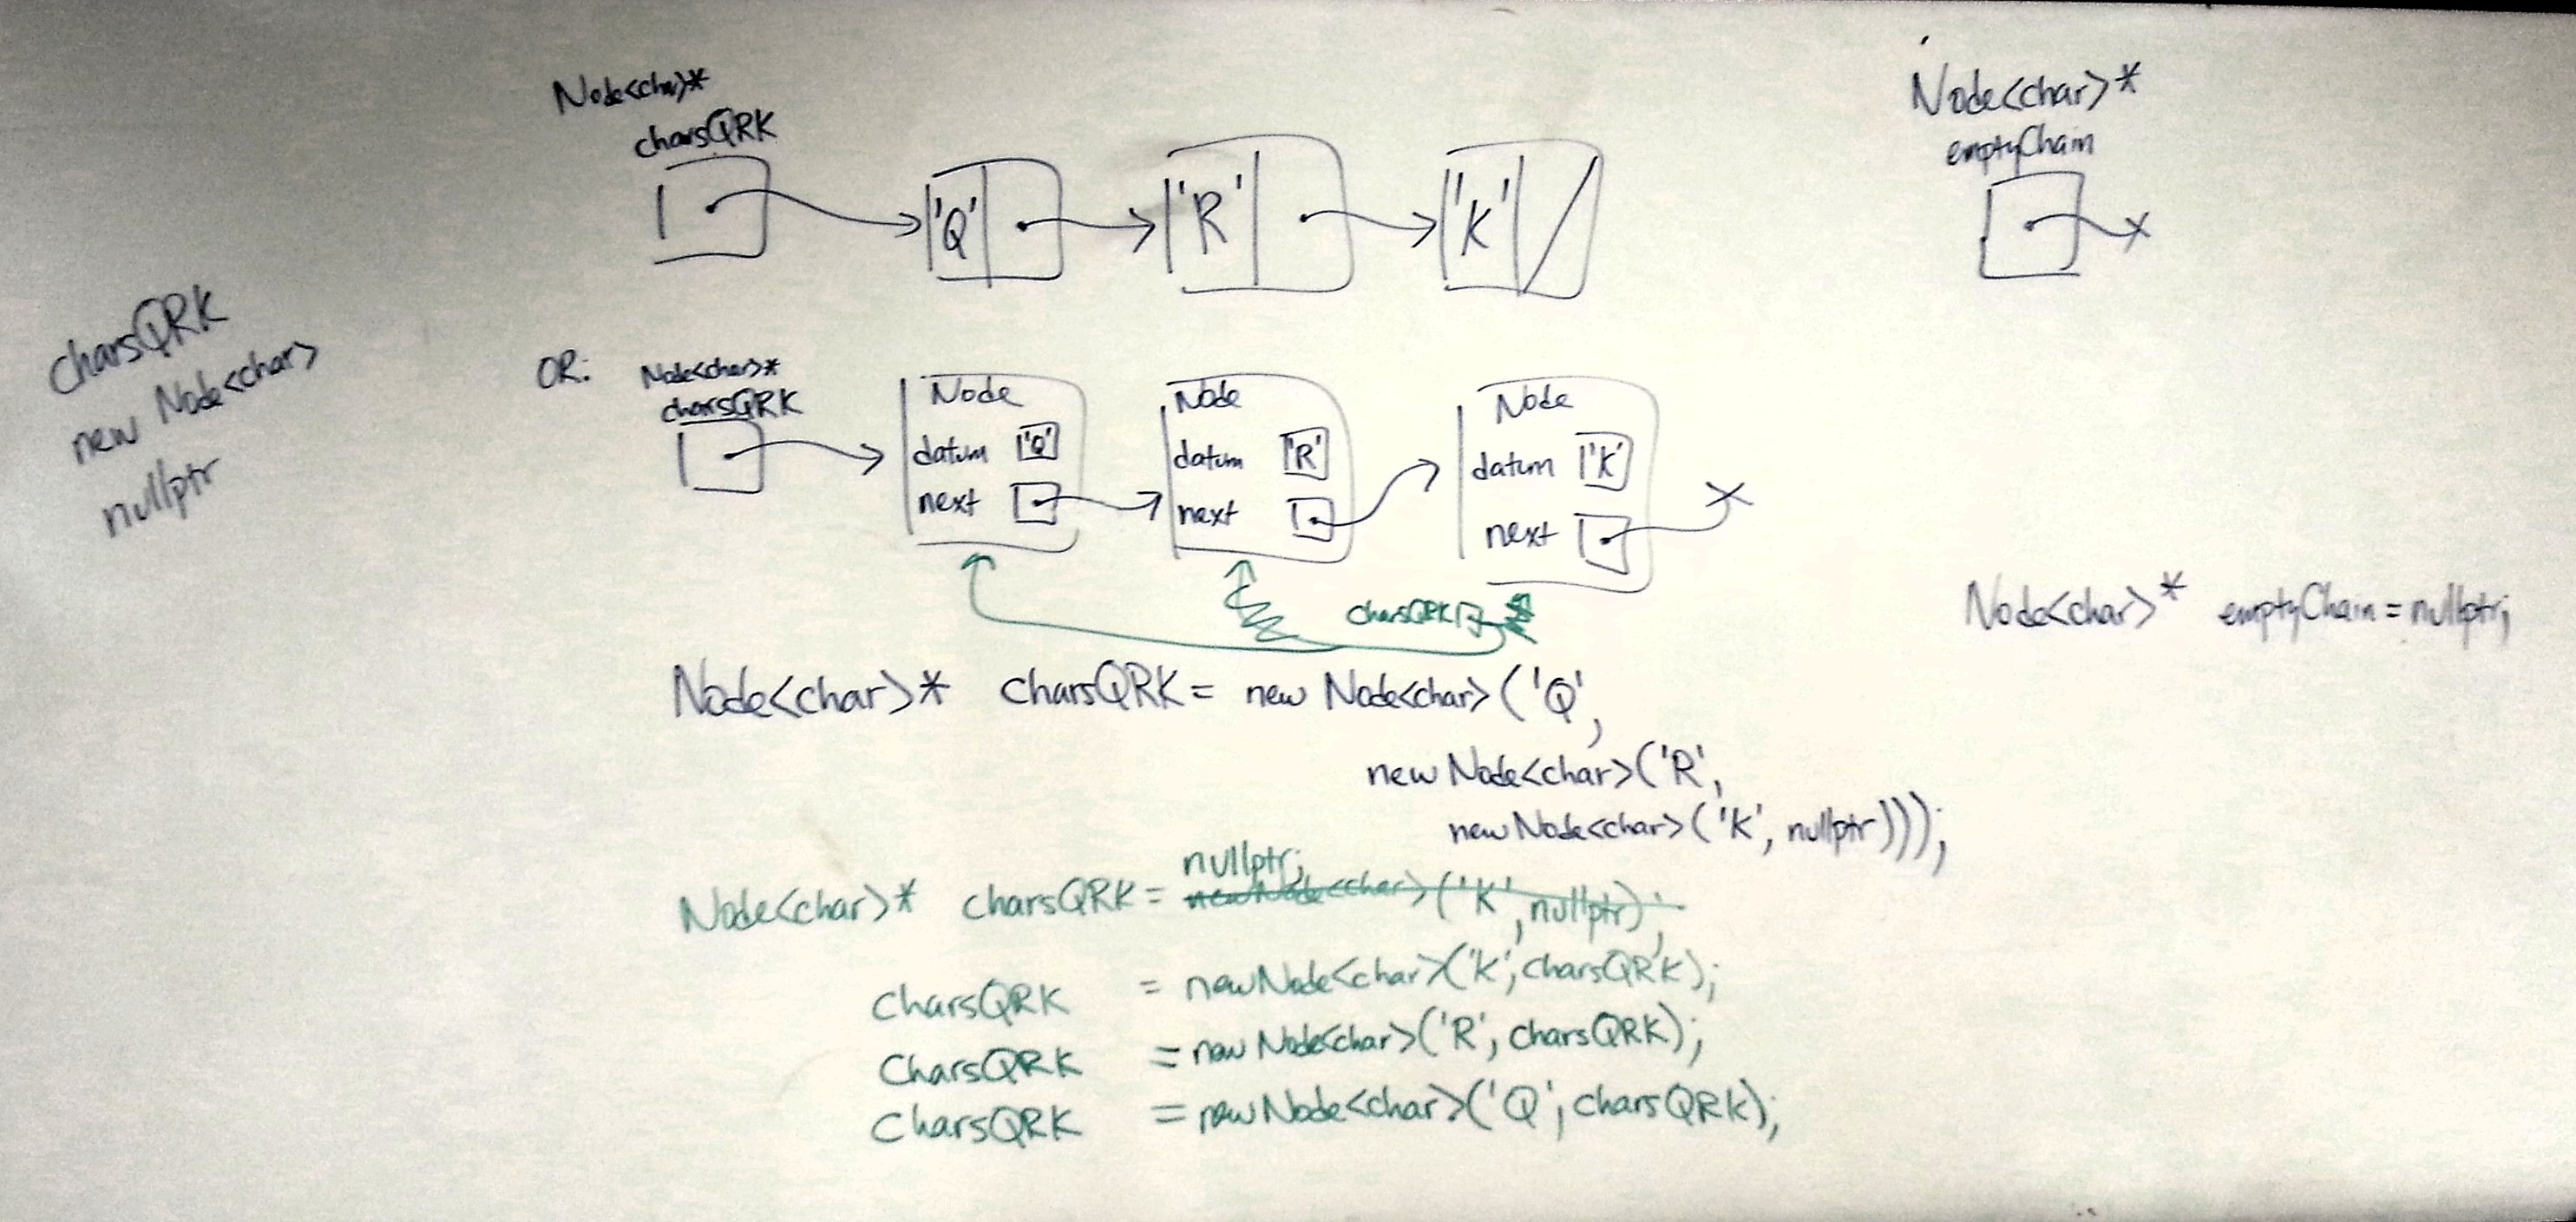 Node<char>*
charsQRK
'Q' 'R' 'K'
Node<char>*
emptyChain
charsQRK
new Node<char>
nullptr
OR:
Node<char>*
charsQRK
Node
datum 'Q'
next
Node
datum 'R'
next
Node
datum 'K'
next
charsQRK
Node<char>* emptyChain = nullptr;
Node<char>* charsQRK = new Node<char>('Q',
new Node<char>('R',
new Node<char>('K', nullptr)));
nullptr;
Node<char>* charsQRK = new Node<char>('K', nullptr);
charsQRK = new Node<char>('K', charsQRK);
charsQRK = new Node<char>('R', charsQRK);
charsQRK = new Node<char>('Q', charsQRK);